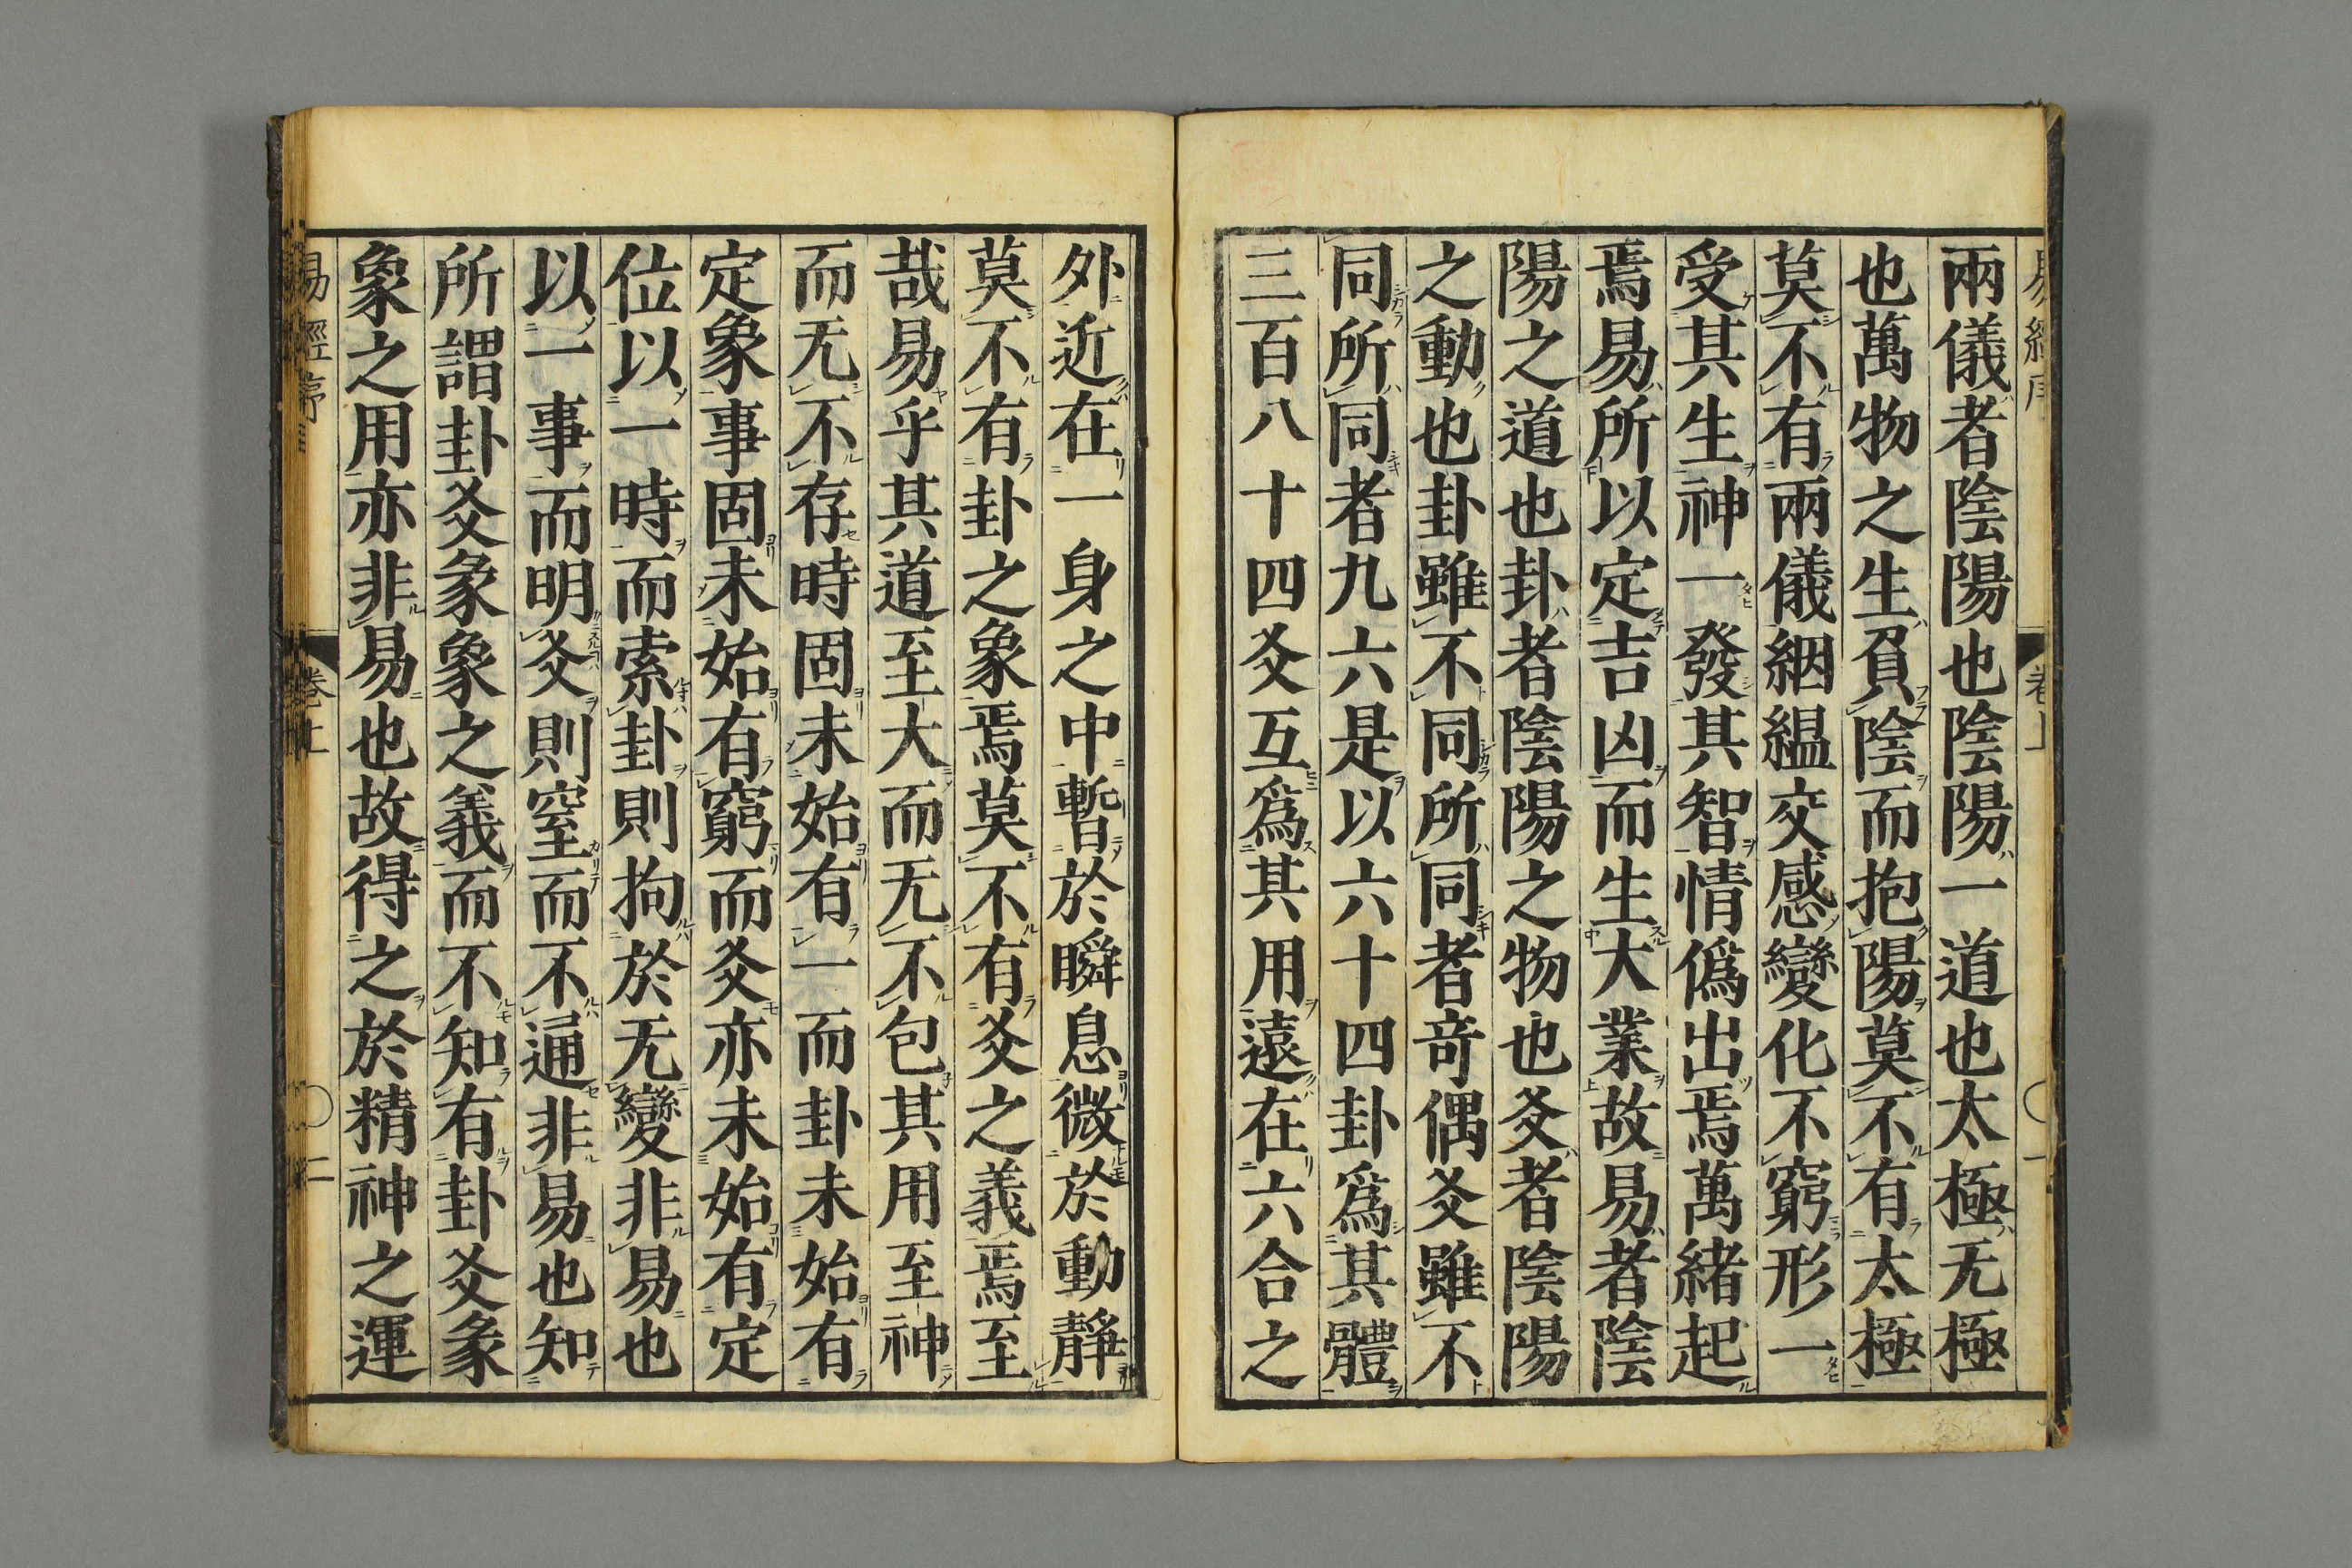 易經序
卷上
一
兩儀者陰陽也陰陽一道也太極无極
也萬物之生負陰而抱陽莫不有太極
莫不有兩儀絪縕交感變化不窮形一
受其生神一發其智情僞出焉萬緒起
焉易所以定吉凶而生大業故易者陰
陽之道也卦者陰陽之物也爻者陰陽
之動也卦雖不同所同者竒偶爻雖不
同所同者九六是以六十四卦爲其體
三百八十四爻互爲其用遠在六合之
外近在一身之中暫於瞬息微於動靜
莫不有卦之象焉莫不有爻之義焉至
哉易乎其道至大而无不包其用至神
而无不存時固未始有一而卦未始有
定象事固未始有窮而爻亦未始有定
位以一時而索卦則拘於无變非易也
以一事而明爻則窒而不通非易也知
所謂卦爻彖象之義而不知有卦爻彖
象之用亦非易也故得之於精神之運
易經序
卷上
二